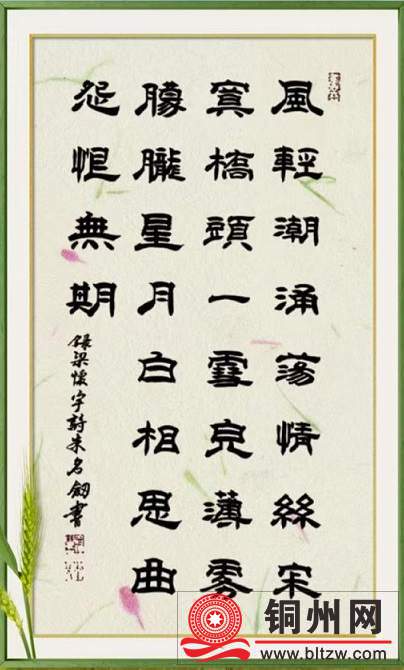 風輕潮涌蕩情絲寂
寞橋頭一薄雾
朦朧星月白相思曲
怨恨無期
錄梁懷宇詩朱名劔書
铜州网
www.bltzw.com